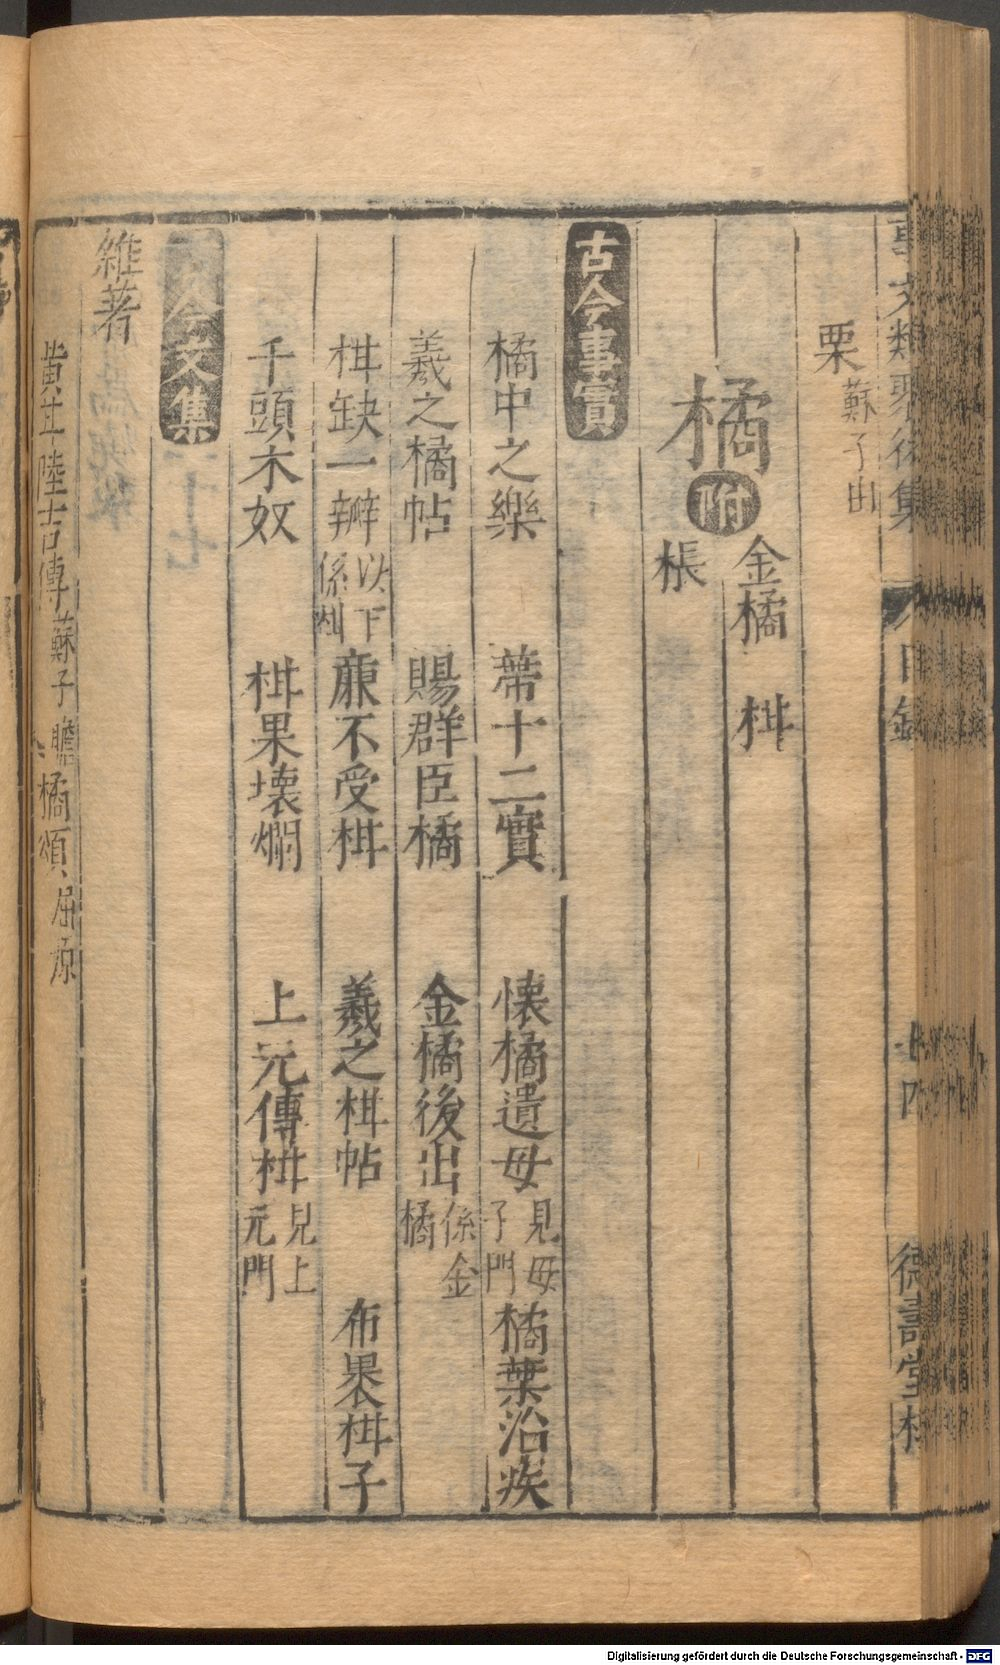 事文類聚後集 目錄 十四 德壽堂梓
栗 蘇子由
橘 附 金橘 柑 棖
古今事實
橘中之樂 蒂十二實 懐橘遺母 見母子門 橘葉治疾
羲之橘帖 賜群臣橘 金橘後出 係金橘
柑缺一瓣 以下係柑 廉不受柑 羲之柑帖 布裹柑子
千頭木奴 柑果壊爛 上元傳柑 見上元門
古今文集
雜著
黄甘陸吉傳 蘇子瞻 橘頌 屈原
Digitalisierung gefördert durch die Deutsche Forschungsgemeinschaft - DFG